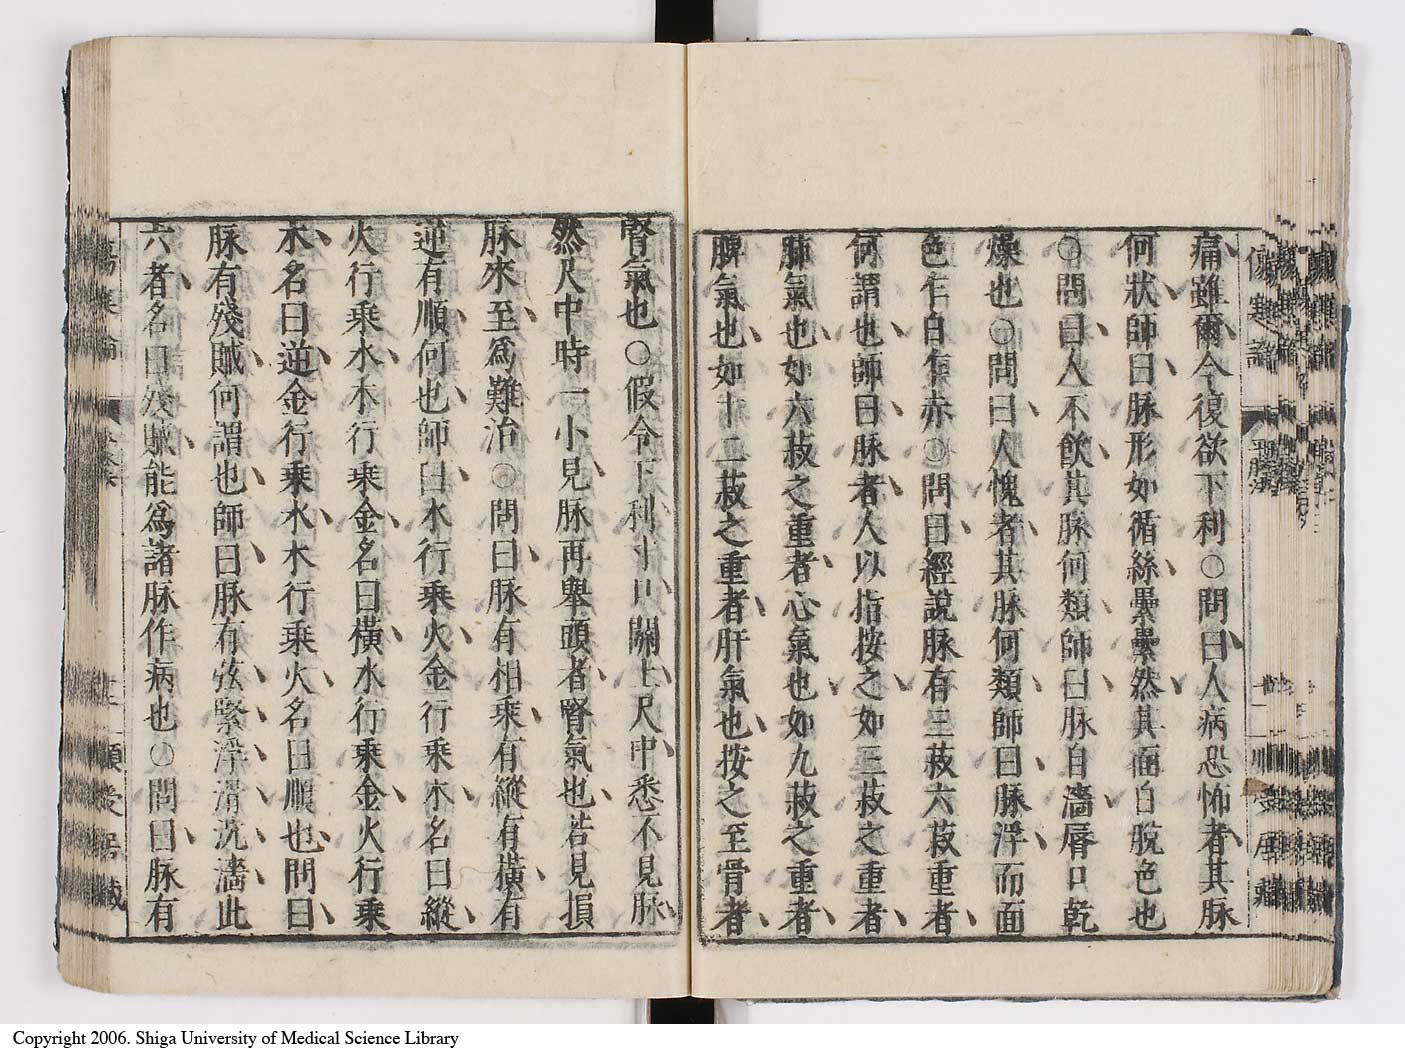 痛雖爾今復欲下利○問曰人病恐怖者其脉
何狀師曰脉形如循絲纍纍然其面白脫色也
○問曰人不飲其脉何類師曰脉自濇脣口乾
燥也○問曰人愧者其脉何類師曰脉浮而面
色乍白乍赤○問曰經說脉有三菽六菽重者
何謂也師曰脉者人以指按之如三菽之重者
肺氣也如六菽之重者心氣也如九菽之重者
脾氣也如十二菽之重者肝氣也按之至骨者
腎氣也○假令下利寸口關上尺中悉不見脉
然尺中時一小見脉再舉頭者腎氣也若見損
脉來至爲難治○問曰脉有相乘有縱有橫有
逆有順何也師曰水行乘火金行乘木名曰縱
火行乘水木行乘金名曰橫水行乘金火行乘
木名曰逆金行乘水木行乘火名曰順也問曰
脉有殘賊何謂也師曰脉有弦緊浮滑沉濇此
六者名曰殘賊能爲諸脉作病也○問曰脉有
Copyright 2006. Shiga University of Medical Science Library